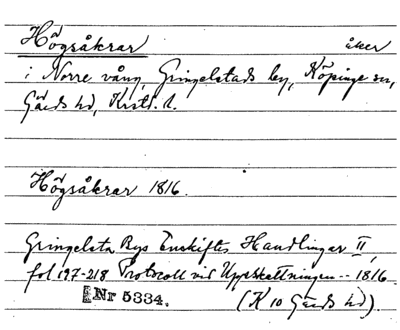 Högsåkrar åker
i Norre vång, Gringelstads by, Köpinge sn,
Gärds hd, Krist. l.
Högsåkrar 1816.
Gringelsta Bys Enskiftes Handlingar II,
fol 197-218 Protocoll vid Uppskattningen -- 1816.
Nr 5334. (K 10 Gärds hd).